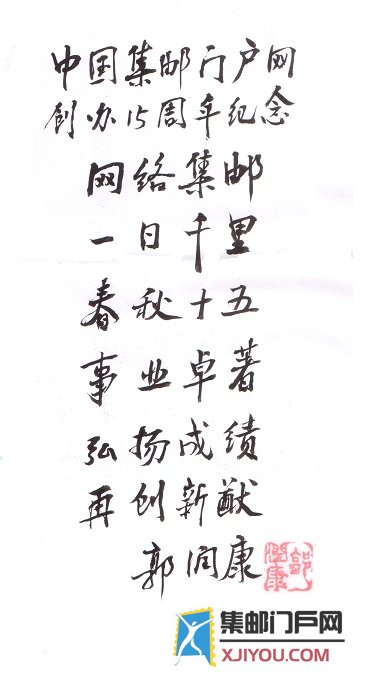 中国集邮门户网
创办15周年纪念
网络集邮
一日千里
春秋十五
事业卓著
弘扬成绩
再创新猷
郭润康
郭润康
集邮门户网
XJIYOU.COM